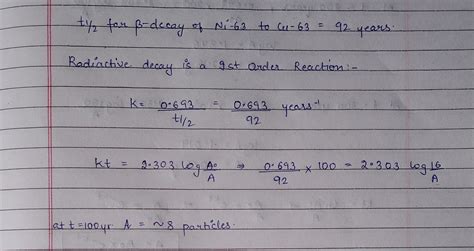 t1/2 for β-decay of Ni-63 to Cu-63 = 92 years.
Radiactive decay is a 1st Order Reaction:-
K = 0.693/t1/2 = 0.693/92 years⁻¹
Kt = 2.303 log A₀/A ⇒ 0.693/92 × 100 = 2.303 log 16/A
at t=100yr A = ~8 particles.